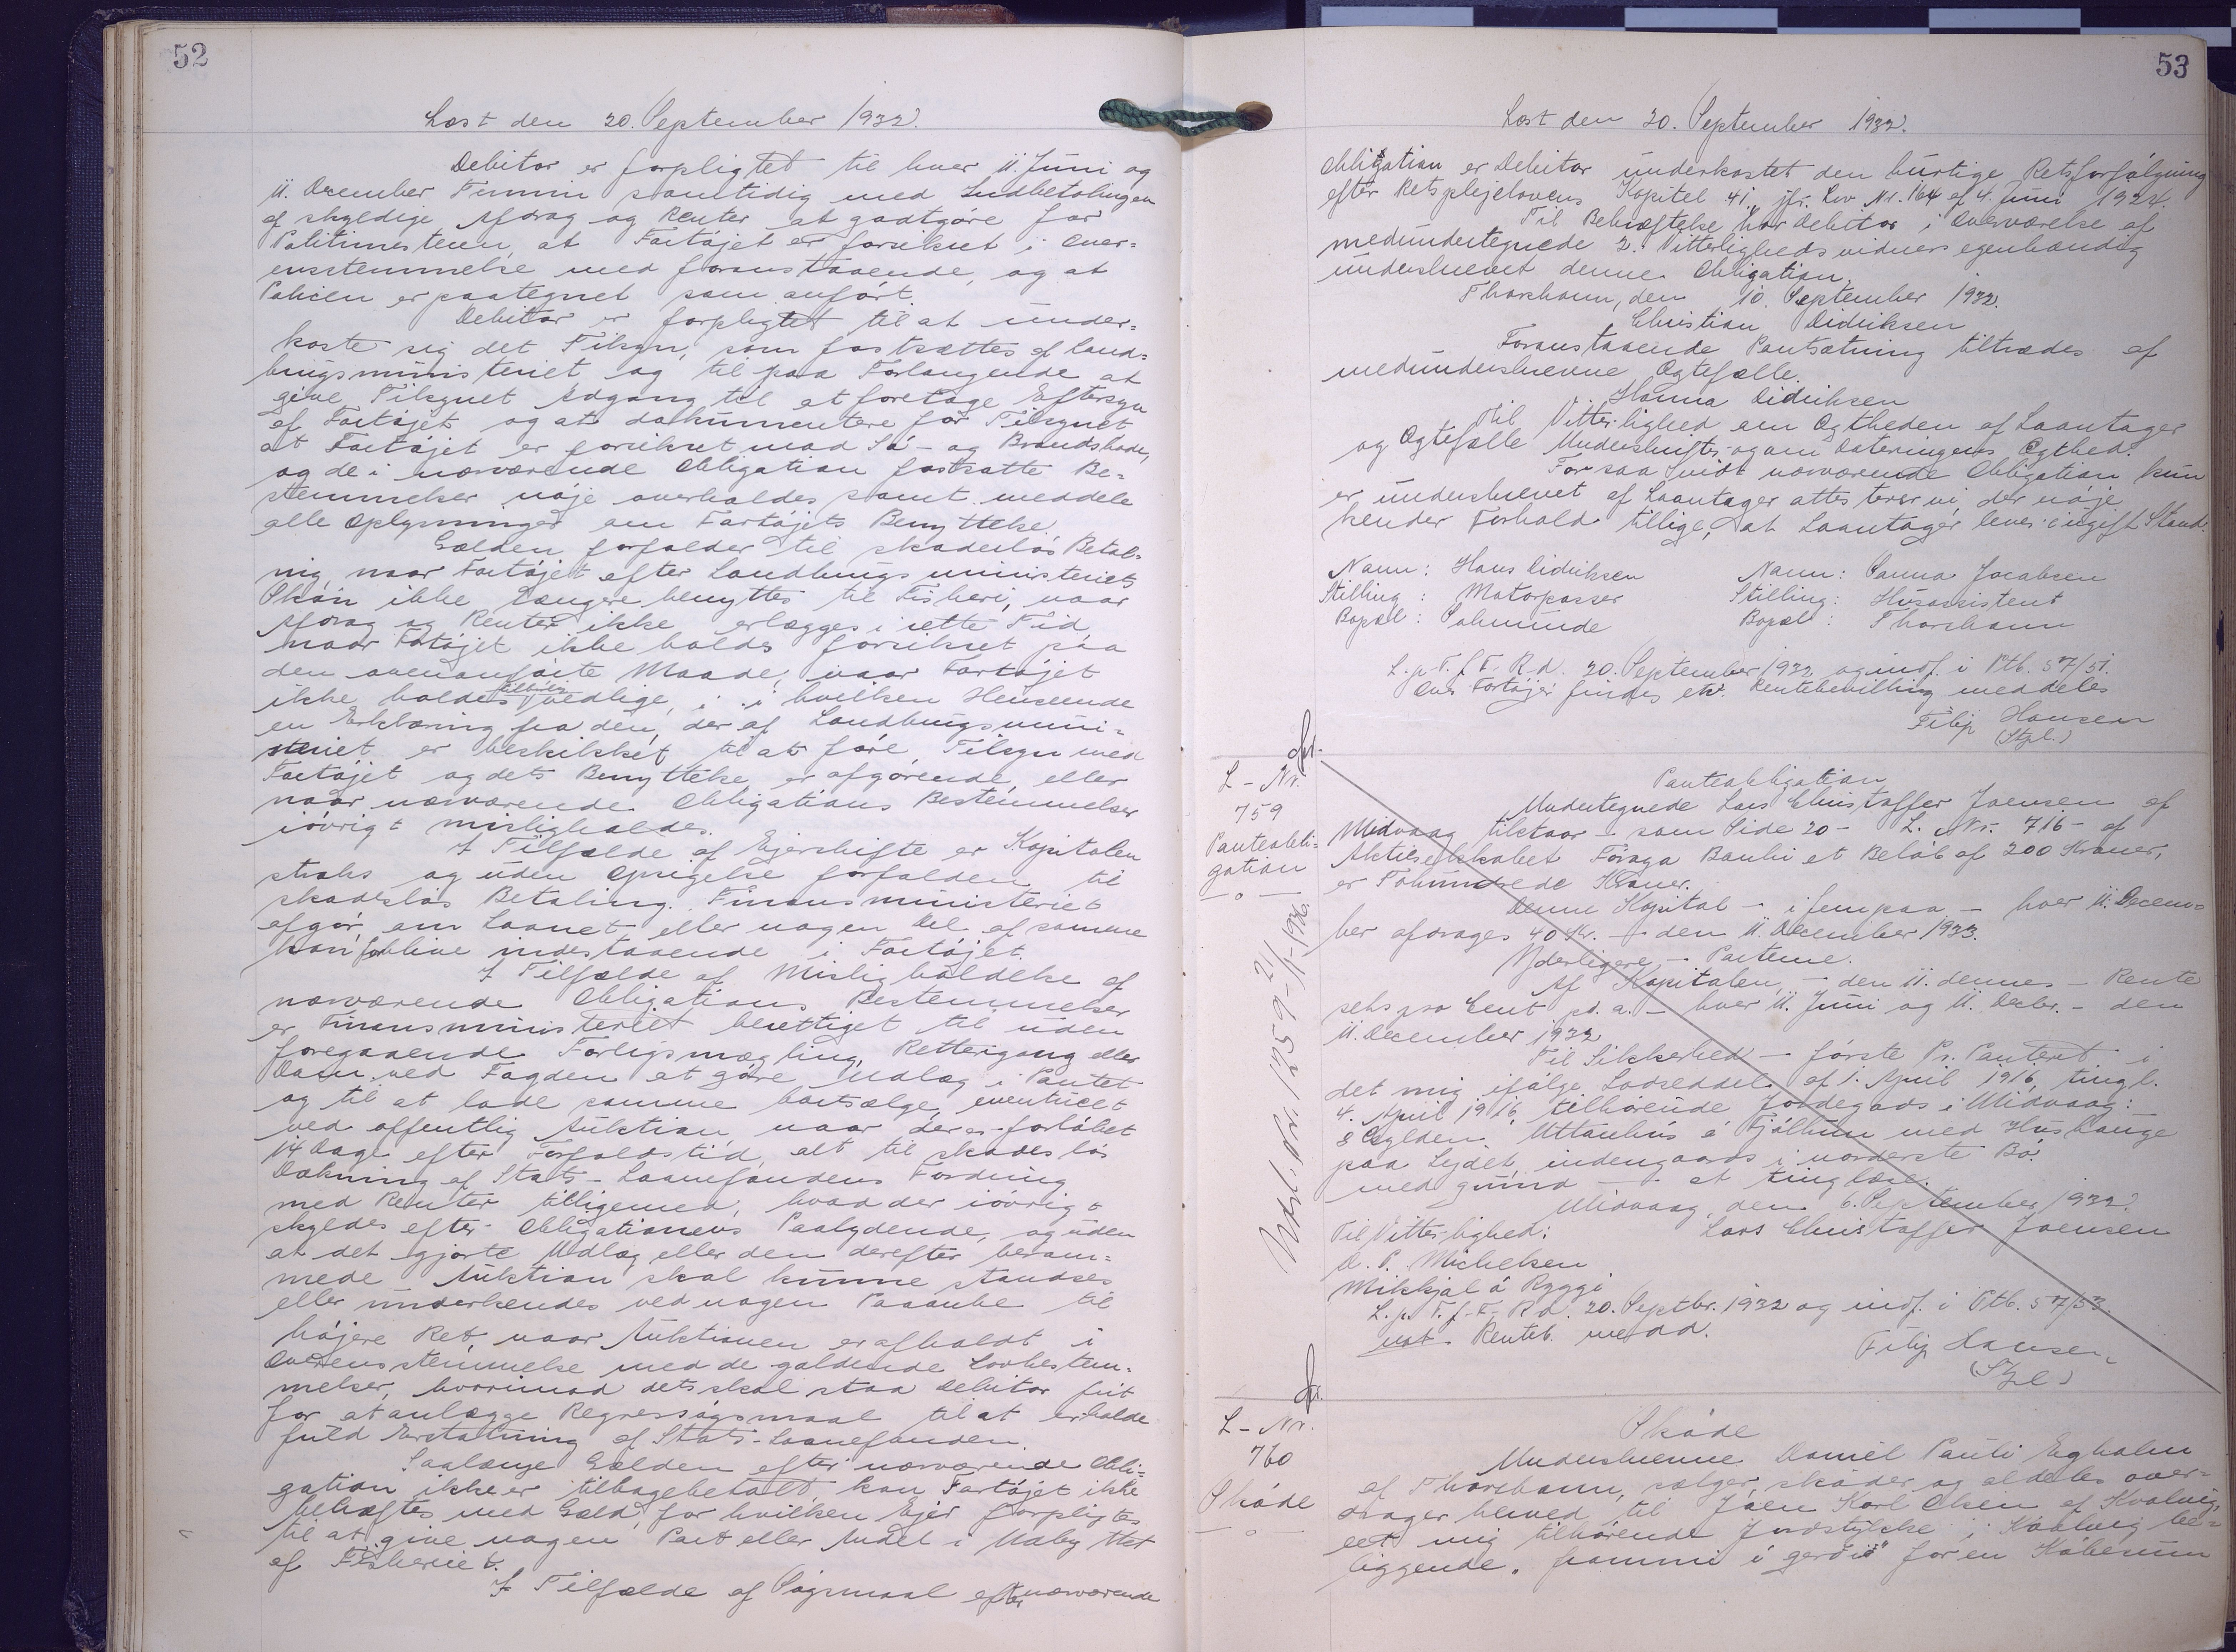 52
Læst den 20. September 1932.
Debitor er forpligtet til hver 11. Juni og
11. December Termin samtidig med Indbetalingen
af skyldige Afdrag og Renter at godtgøre for
Politimesteren, at Fartøjet er forsikret i Over-
ensstemmelse med foranstaaende, og at
Policen er paategnet som anført.
Debitor er forpligtet til at under-
kaste sig det Tilsyn, som fastsættes af Land-
brugsministeriet og til paa Forlangende at
give Tilsynet Adgang til at foretage Eftersyn
af Fartøjet og at dokumentere for Tilsynet
at Fartøjet er forsikret mod Sø- og Brandskade,
og de i nærværende Obligation fastsatte Be-
stemmelser nøje overholdes samt meddele
alle Oplysninger om Fartøjets Benyttelse.
Gælden forfalder til skadesløs Betal-
ing, naar Fartøjet efter Landbrugsministeriets
Skøn ikke længere benyttes til Fiskeri, naar
Afdrag og Renter ikke erlægges i rette Tid
naar Fatøjet ikke holds forsikret paa
den ovenanførte Maade, naar Fartøjet
ikke holdes tilbørlig vedlige, i hvilken Henseende
en Erklæring fra den, der af Landbrugsmini-
steriet er beskikket til at føre Tilsyn med
Fartøjet og dets Benyttelse, er afgørende, eller
naar nærværende Obligations Bestemmelser
iøvrigt misligholdes.
I Tilfælde af Ejerskifte er Kapitalen
straks og uden Opsigelse forfalden til
skadesløs Betaling. Finansministeriet
afgør, om Laanet eller nogen Del af samme
kan forblive indestaaende i Fartøjet.
I Tilfælde af Misligholdelse af
nærværende Obligations Bestemmelser
er Finansministeriet berettiget til uden
foregaaende Forligsmægling, Rettergang eller
Dom ved Fogden at gøre Udlæg i Pantet
og til at lade samme bortsælge, eventuelt
ved offentlig Auktion naar der er forløbet
14 Dage efter Forfaldstid, alt til skadesløs
Dækning af Stats-Laanefondens Fordring
med Renter tilligemed, hvad der iøvrigt
skyldes efter Obligationens Paalydende, og uden
at det gjorte Udlæg eller den derefter beram-
mede Auktion skal kunne standses
eller underkendes ved nogen Paaanke til
højere Ret, naar Auktionen er afholdt i
Overensstemmelse med de gældende Lovbestem-
melser, hvorimod det skal staa Debitor frit
for at anlægge Regressøgsmaal til at erholde
fuld Erstatning af Stats-Laanefonden.
Saalænge Gælden efter nærværende Obli-
gation ikke er tilbagebetalt, kan Fartøjet ikke
behæftes med Gæld, for hvilken Ejer forpligtes
til at give nogen Part eller Andel i Udbyttet
af Fiskeriet.
I Tilfælde af Søgsmaal efter nærværende
53
Læst den 20. September 1932.
Obligation er Debitor underkastet den hurtige Retsforfølgning
efter Retsplejelovens Kapitel 41, jfr. Lov Nr. 164 af 4. Juni 1924.
Til Bekræftelse har Debitor i Overværelse af
medundertegnede 2. Vitterligheds vidner egenhændig
underskrevet denne Obligation.
Thorshavn, den 10. September 1932.
Christian Didriksen
Foranstaaende Pantsætning tiltrædes af
medunderskrevne Ægtefælle.
Hanna Didriksen
Til Vitterlighed om Ægtheden af Laantager
og Ægtefælle Underskrifts- og om Dateringens Ægthed.
For saa vidt nærværende Obligation kun
er underskrevet af Laantager attesterer vi, der nøje
kender Forhold tillige, at Laantager lever i ugift Stand.
Navn: Hans Didriksen
Stilling: Motorpasser
Bopæl: Solmunde
Navn: Sanna Jacobsen
Stilling: Husassistent
Bopæl: Thorshavn
L. p. T. f. F. R. d. 20. September 1932 og indf. i Ptb. 57/51.
Over Fartøjer findes etc. Rentebevilling meddeles
Filip Hansen
(Stpl.)
L-Nr.
759
Panteobli-
gation
Udsl. Nr. 1359 - 21/1-1936.
Panteobligation
Undertegnede Lars Christoffer Joensen af
Midvaag tilstaar - som Side 20 - L. Nr. 716 - af
Aktieselskabet Føroya Banki et Beløb af 200 Kroner,
er Tohundrede Kroner.
Denne Kapital - i fem paa - hver 11. Decem-
ber afdrages 40 Kr. - den 11. December 1933.
Yderligere - Parterne.
Af Kapitalen - den 11. dennes - Rente
seks pro Cent p. a. - hver 11. Juni og 11. Decbr. - den
11. December 1932
Til Sikkerhed - første Pr. Panteret i
det mig ifølge Lodseddel af 1. April 1916, tingl.
4. April 1916 tilhørende Jordegods i Midvaag:
8 Gylden Uttanhús á Fjølhun med Huslænge
paa Lydet, indengaards i nørderste Bø.
med grund - at tinglæse.
Midvaag, den 6. September 1932.
Til Vitterlighed:
Lars Christoffer Joensen
D. P. Michelsen
Mikkjal á Ryggi
L. p. T. f. F. R. d. 20. Septbr. 1932 og indf. i Ptb. 57/53.
not. Renteb. medd.
Filip Hansen
(Stpl.)
L-Nr.
760
Skøde
Skøde
Underskrevne Daniel Pauli Egholm
af Thorshavn, sælger, skøder og aldeles over-
drager herved til Joen Karl Olsen af Kvalvig,
eet mig tilhørende Jordstykke i Kvalvig be-
liggende "frammi í gerði" for en Købesum